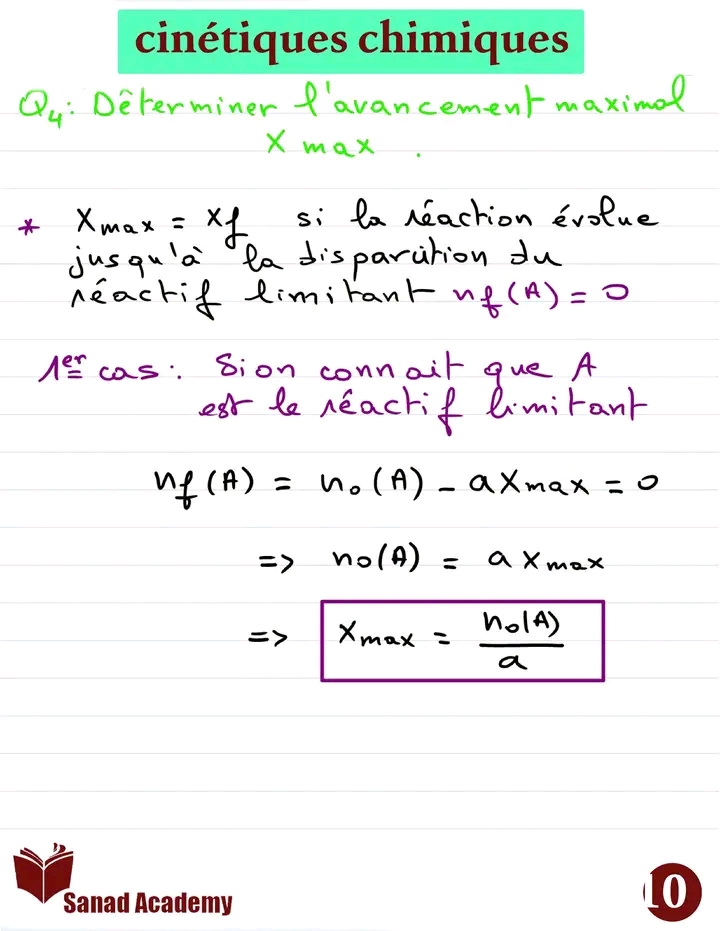 cinétiques chimiques
Q₄: Déterminer l'avancement maximal
X max .
* Xmax = xf si la réaction évolue
jusqu'à la disparition du
réactif limitant nf(A) = 0
1er cas : Si on connait que A
est le réactif limitant
nf(A) = n₀(A) - a Xmax = 0
=> n₀(A) = a xmax
=> Xmax = n₀(A)/a
Sanad Academy
10